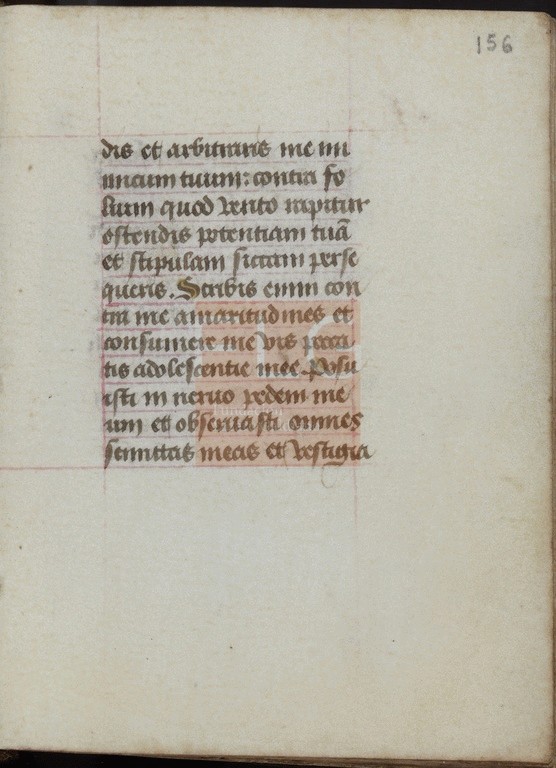 156
dis et arbitraris me ini
micum tuum: contra fo
lium quod vento rapitur
ostendis potentiam tuã
et stipulam siccam perse
queris. Scribis enim con
tra me amaritudines et
consumere me vis pecca
tis adolescentie mee. Posu
isti in neruo pedem me
um et obseruasti omnes
semittas meas et vestigia